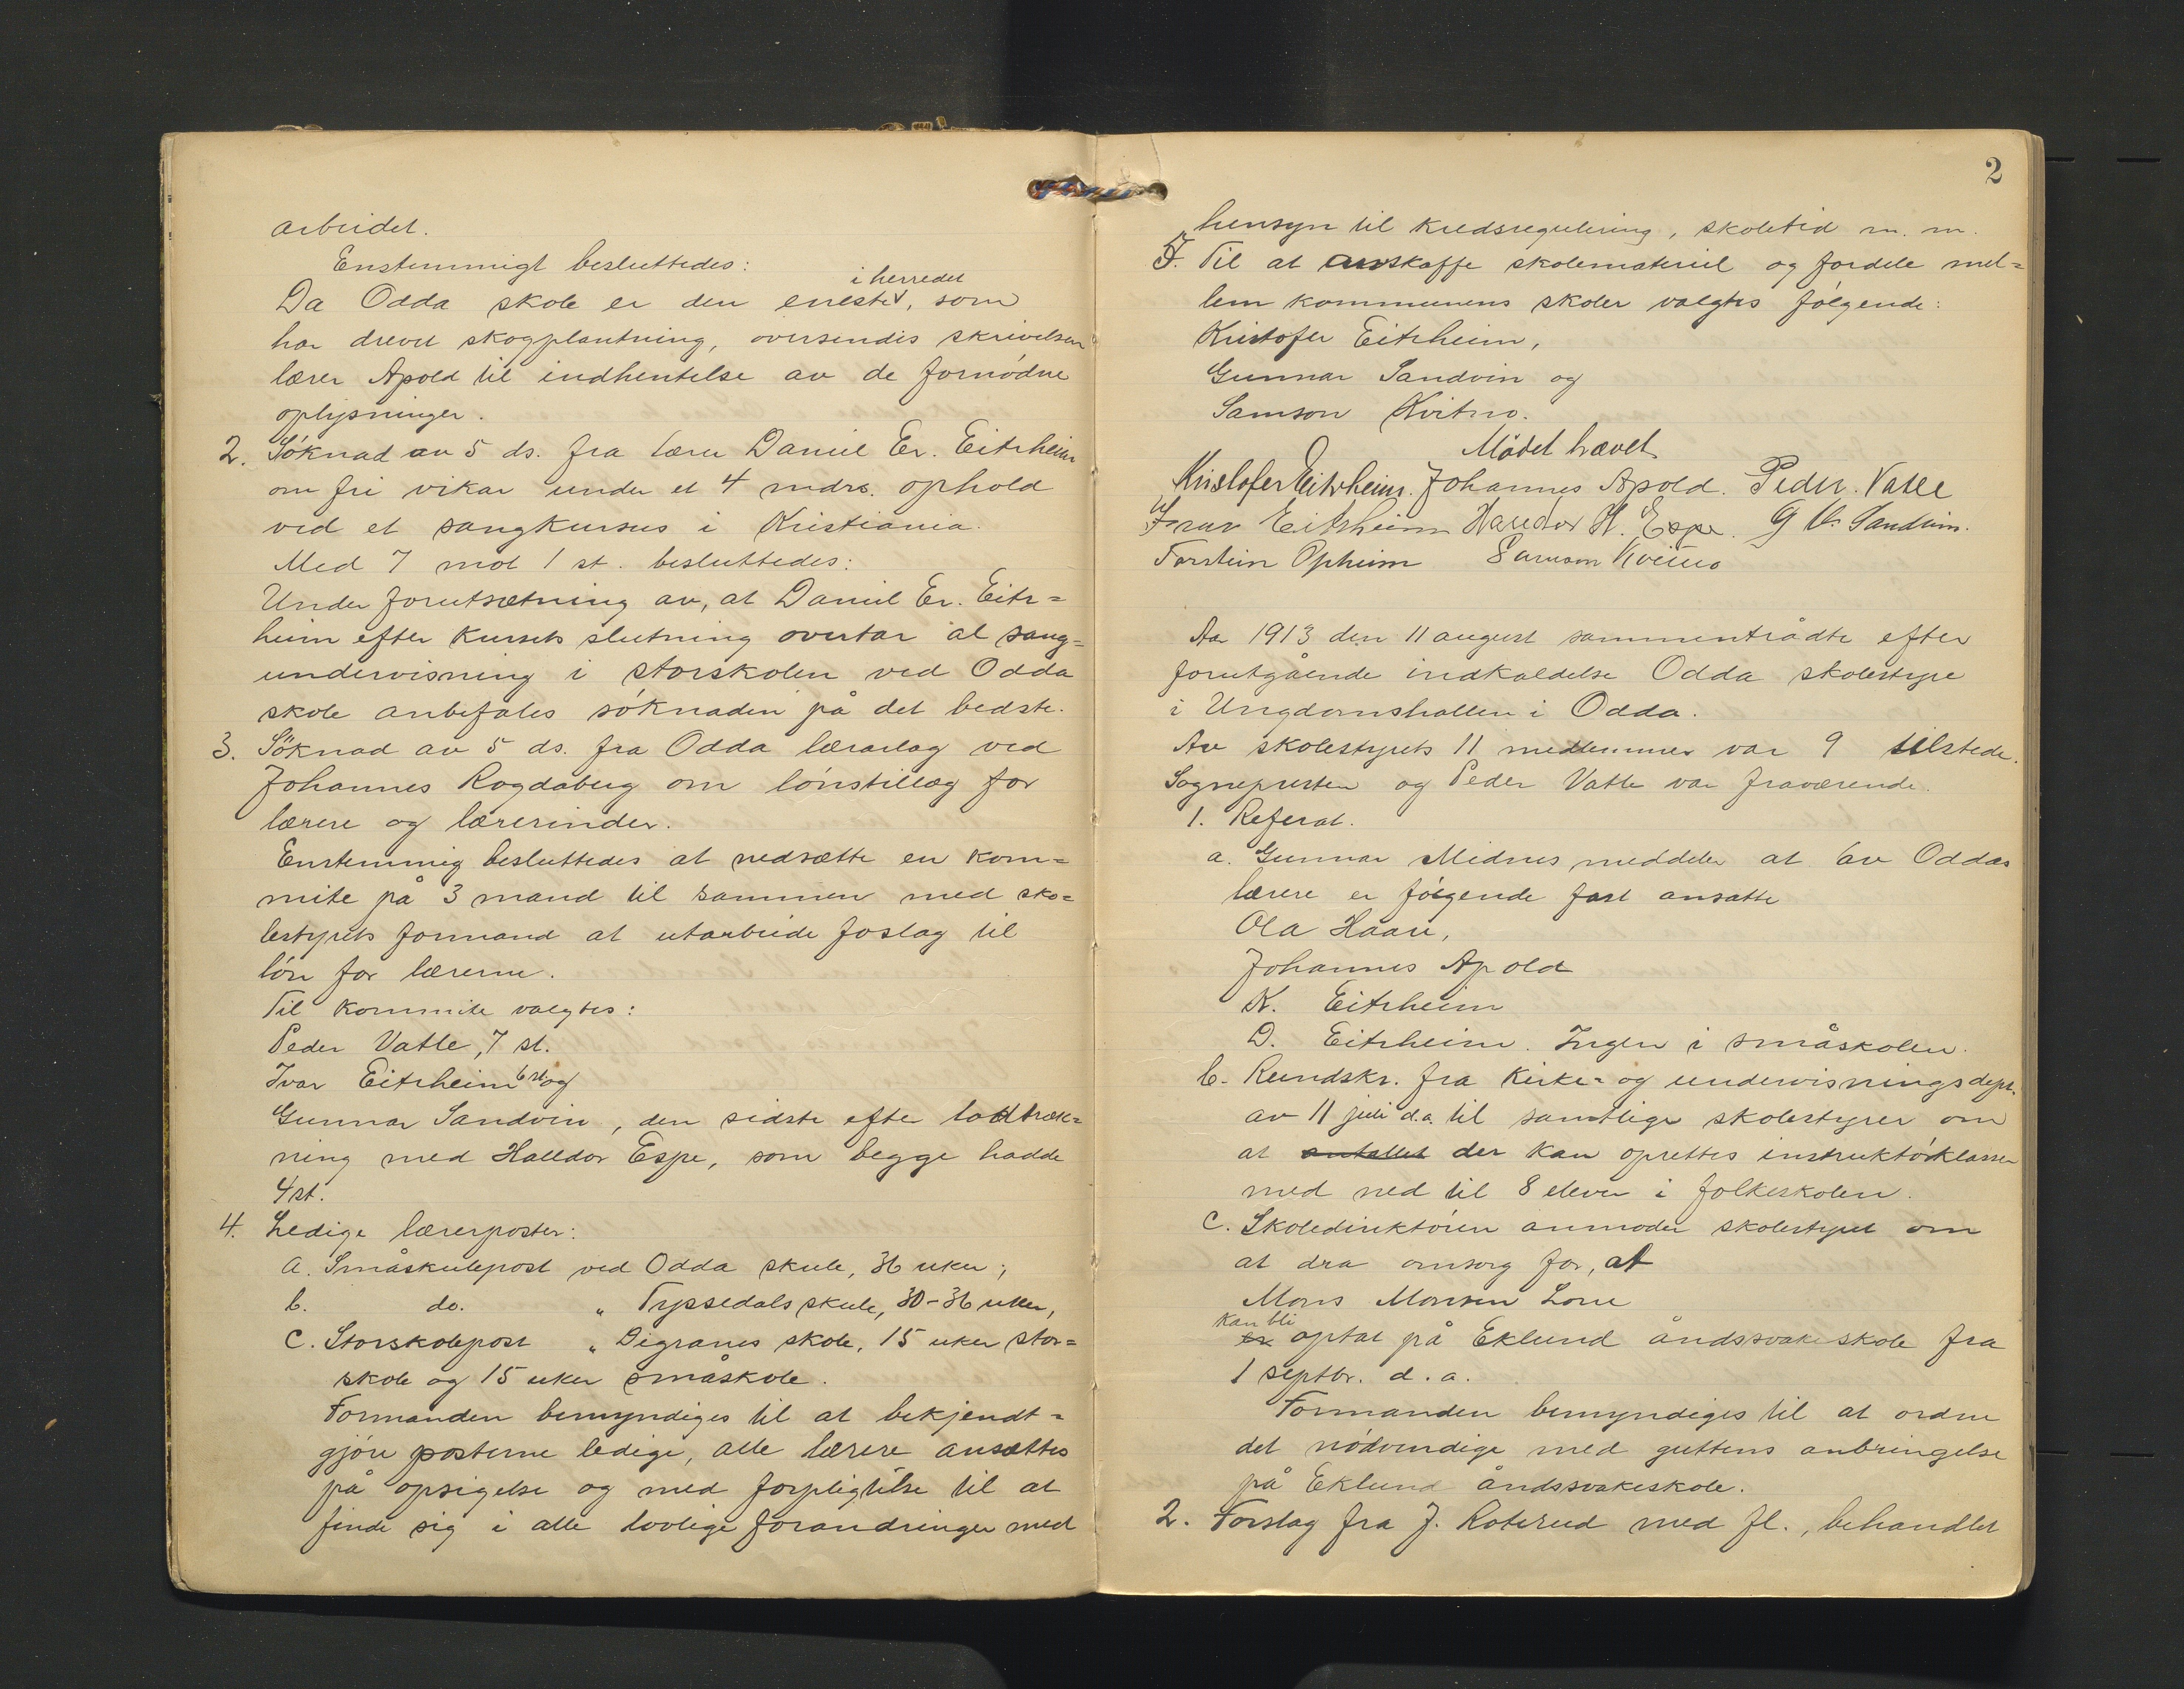 arbeidet.
Enstemmigt besluttedes:
i herredet
Da Odda skole er den eneste, som
har drevet skogplantning, oversendes skrivelsen
lærer Apold til indhentelse av de fornødne
oplysninger.
2. Søknad av 5 ds. fra lærer Daniel Er. Eitrheim
om fri vikar under et 4 mdrs. ophold
ved et sangkursus i Kristiania.
Med 7 mot 1 st. besluttedes:
Under forutsætning av, at Daniel Er. Eitr=
heim efter kursets slutning overtar al sang=
undervisning i storskolen ved Odda
skole anbefales søknaden på det bedste.
3. Søknad av 5 ds. fra Odda lærarlag ved
Johannes Rogdaberg om lønstillæg for
lærere og lærerinder.
Enstemmig besluttedes at nedsætte en kom=
mite på 3 mand til sammen med sko=
lestyrets formand at utarbeide foslag til
løn for lærerne.
Til kommite valgtes:
Peder Vatle, 7 st.
Ivar Eitrheim 6 st og
Gunnar Sandvin, den sidste efter lodtræk=
ning med Halldor Espe, som begge hadde
4 st.
4. Ledige lærerposter:
a. Småskulepost ved Odda skule, 36 uker;
b. do. " Tyssedals skule, 30-36 uker,
c. Storskolepost " Digranes skole, 15 uker stor=
skole og 15 uker småskole.
Formanden bemyndiges til at bekjendt=
gjøre posterne ledige, alle lærere ansættes
på opsigelse og med forpligtelse til at
finde sig i alle lovlige forandringer med
2
hensyn til kredsregulering, skoletid m. m.
5. Til at anskaffe skolemateriel og fordele mel=
lem kommunens skoler valgtes følgende:
Kristofer Eitrheim,
Gunnar Sandvin og
Samson Kvitno.
Mødet hævet
Kristofer Eitrheim. Johannes Apold. Peder Vatle
Ivar Eitrheim Halldor H. Espe. G Sandvin.
Torstein Opheim Samson Kvitno
Aar 1913 den 11 august sammentrådte efter
forutgående indkaldelse Odda skolestyre
i Ungdomshallen i Odda.
Av skolestyrets 11 medlemmer var 9 tilstede.
Sognepresten og Peder Vatle var fraværende.
1. Referat.
a. Gunnar Midnes meddeler at av Oddas
lærere er følgende fast ansatte
Ola Haare,
Johannes Apold
K. Eitrheim
D. Eitrheim. Ingen i småskolen.
b. Rundskr. fra Kirke= og undervisningsdept.
av 11 juli d.a. til samtlige skolestyrer om
at antallet der kan oprettes instruktørklasser
med ned til 8 elever i folkeskolen.
c. Skoledirektøren anmoder skolestyret om
at dra omsorg for, at
Mons Monsen Lone
kan bli
er optat på Eklund åndssvakeskole fra
1 septbr. d. a.
Formanden bemyndiges til at ordne
det nødvendige med guttens anbringelse
på Eklund åndssvakeskole.
2. Forslag fra J. Roterud med fl., behandlet